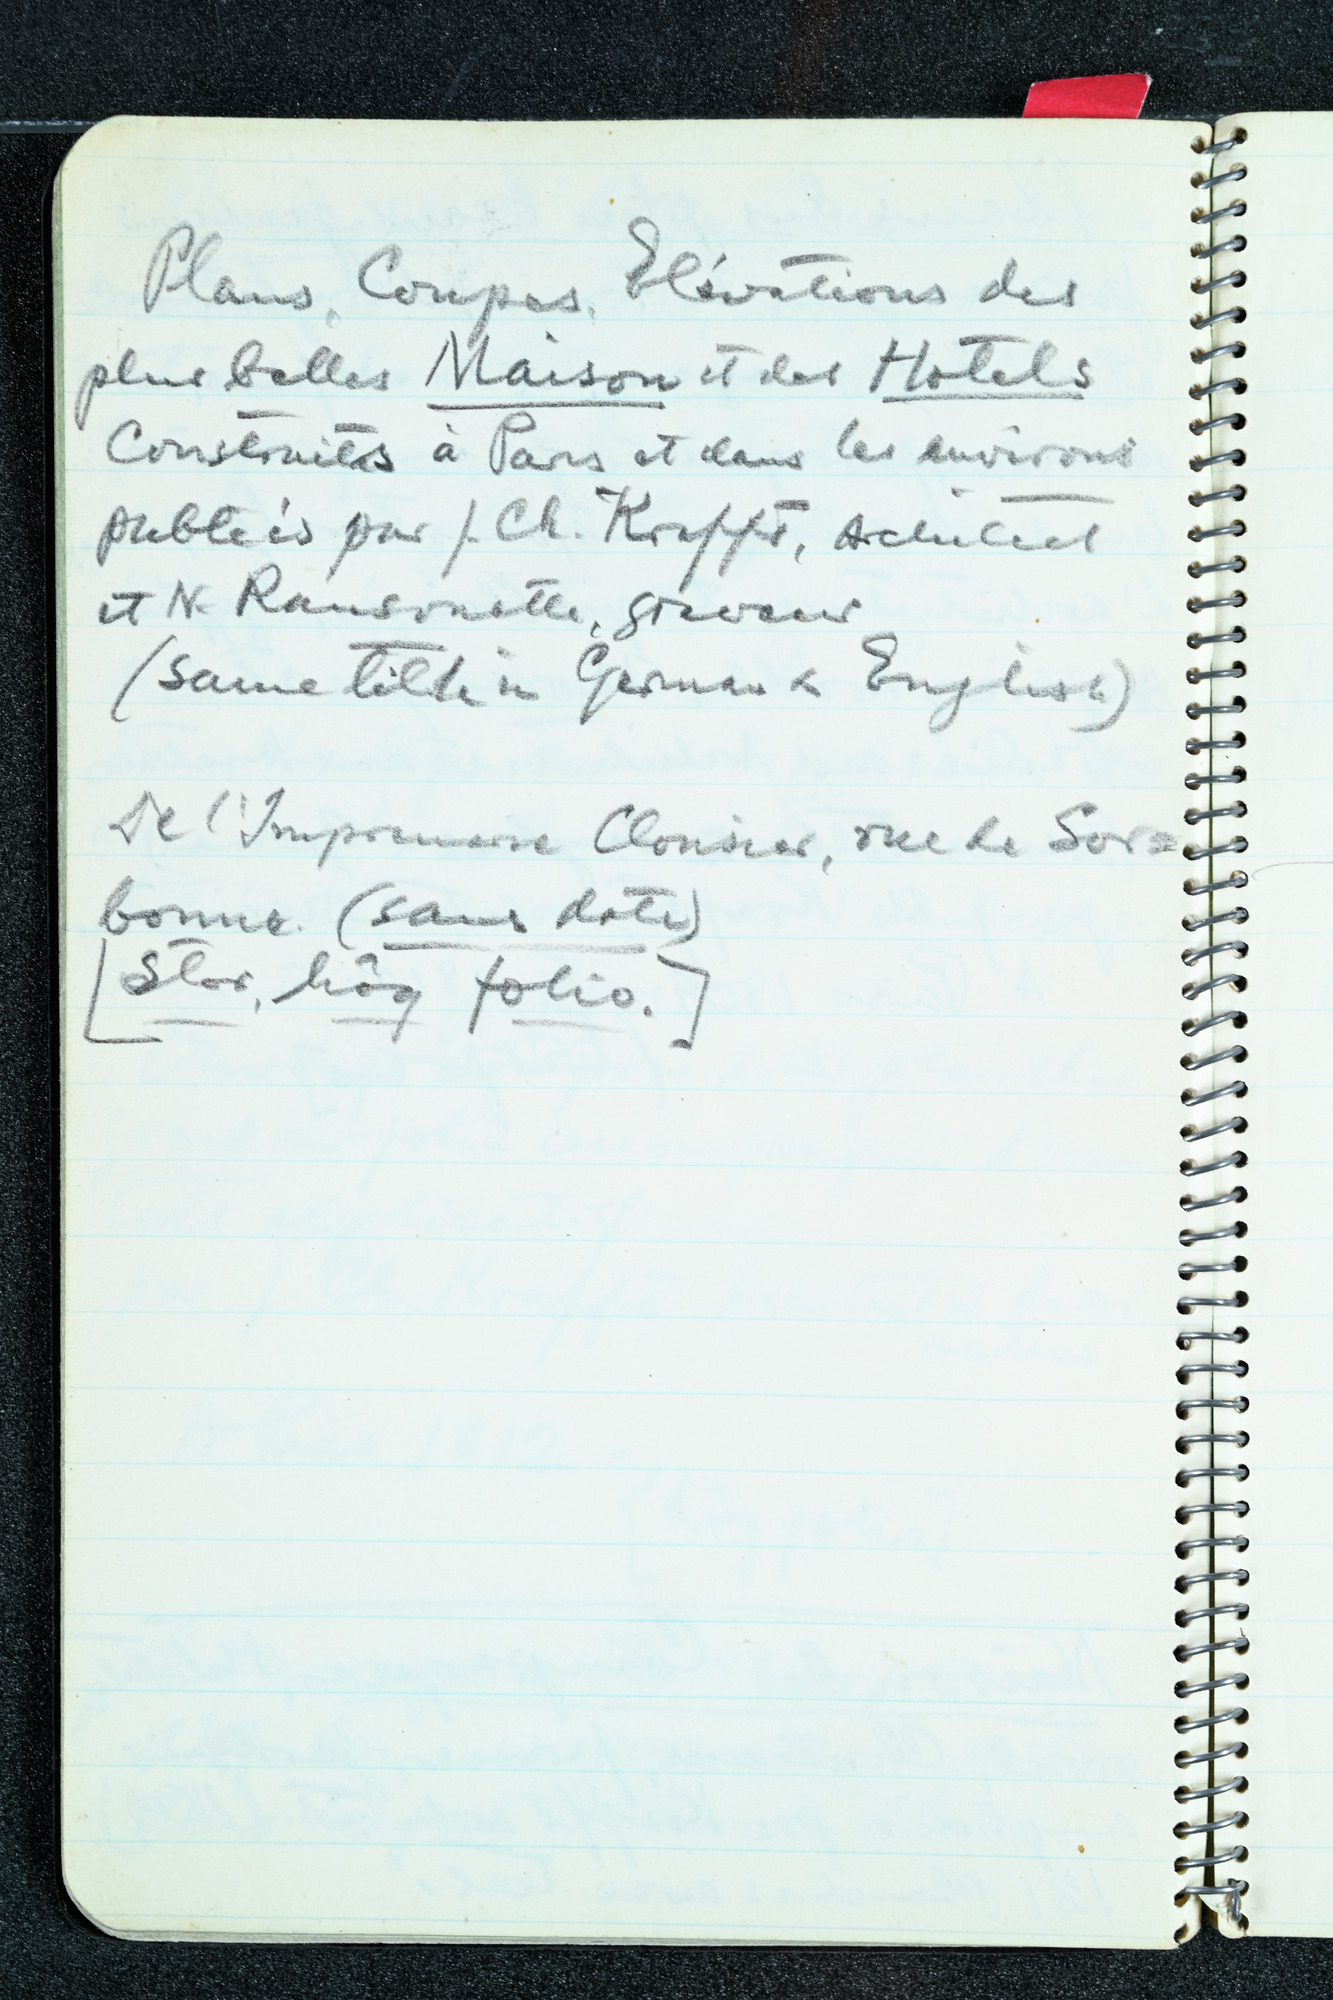 Plans, Coupes, Elévations des
plus belles Maison et des Hotels
Construites à Paris et dans les environs
publiés par J. Ch. Krafft, Architect
et N. Ransonette, graveur
(same title in German & English)
De l'Imprimerie Clousier, rue de Sor=
bonne. (sans date)
[Stor, hög folio.]